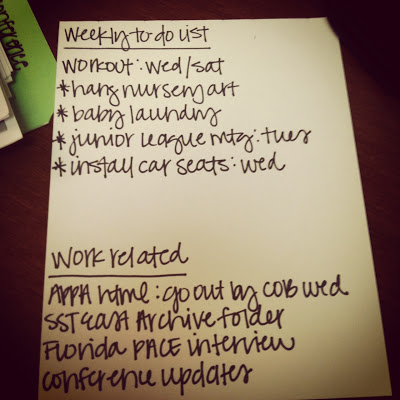 conference
Weekly to do list
Workout: wed/sat
* hang nursery art
* baby laundry
* junior league mtg: tues
* install car seats: wed
Work related
APPA html: go out by COB wed
SST East Archive folder
Florida PACE interview
conference updates